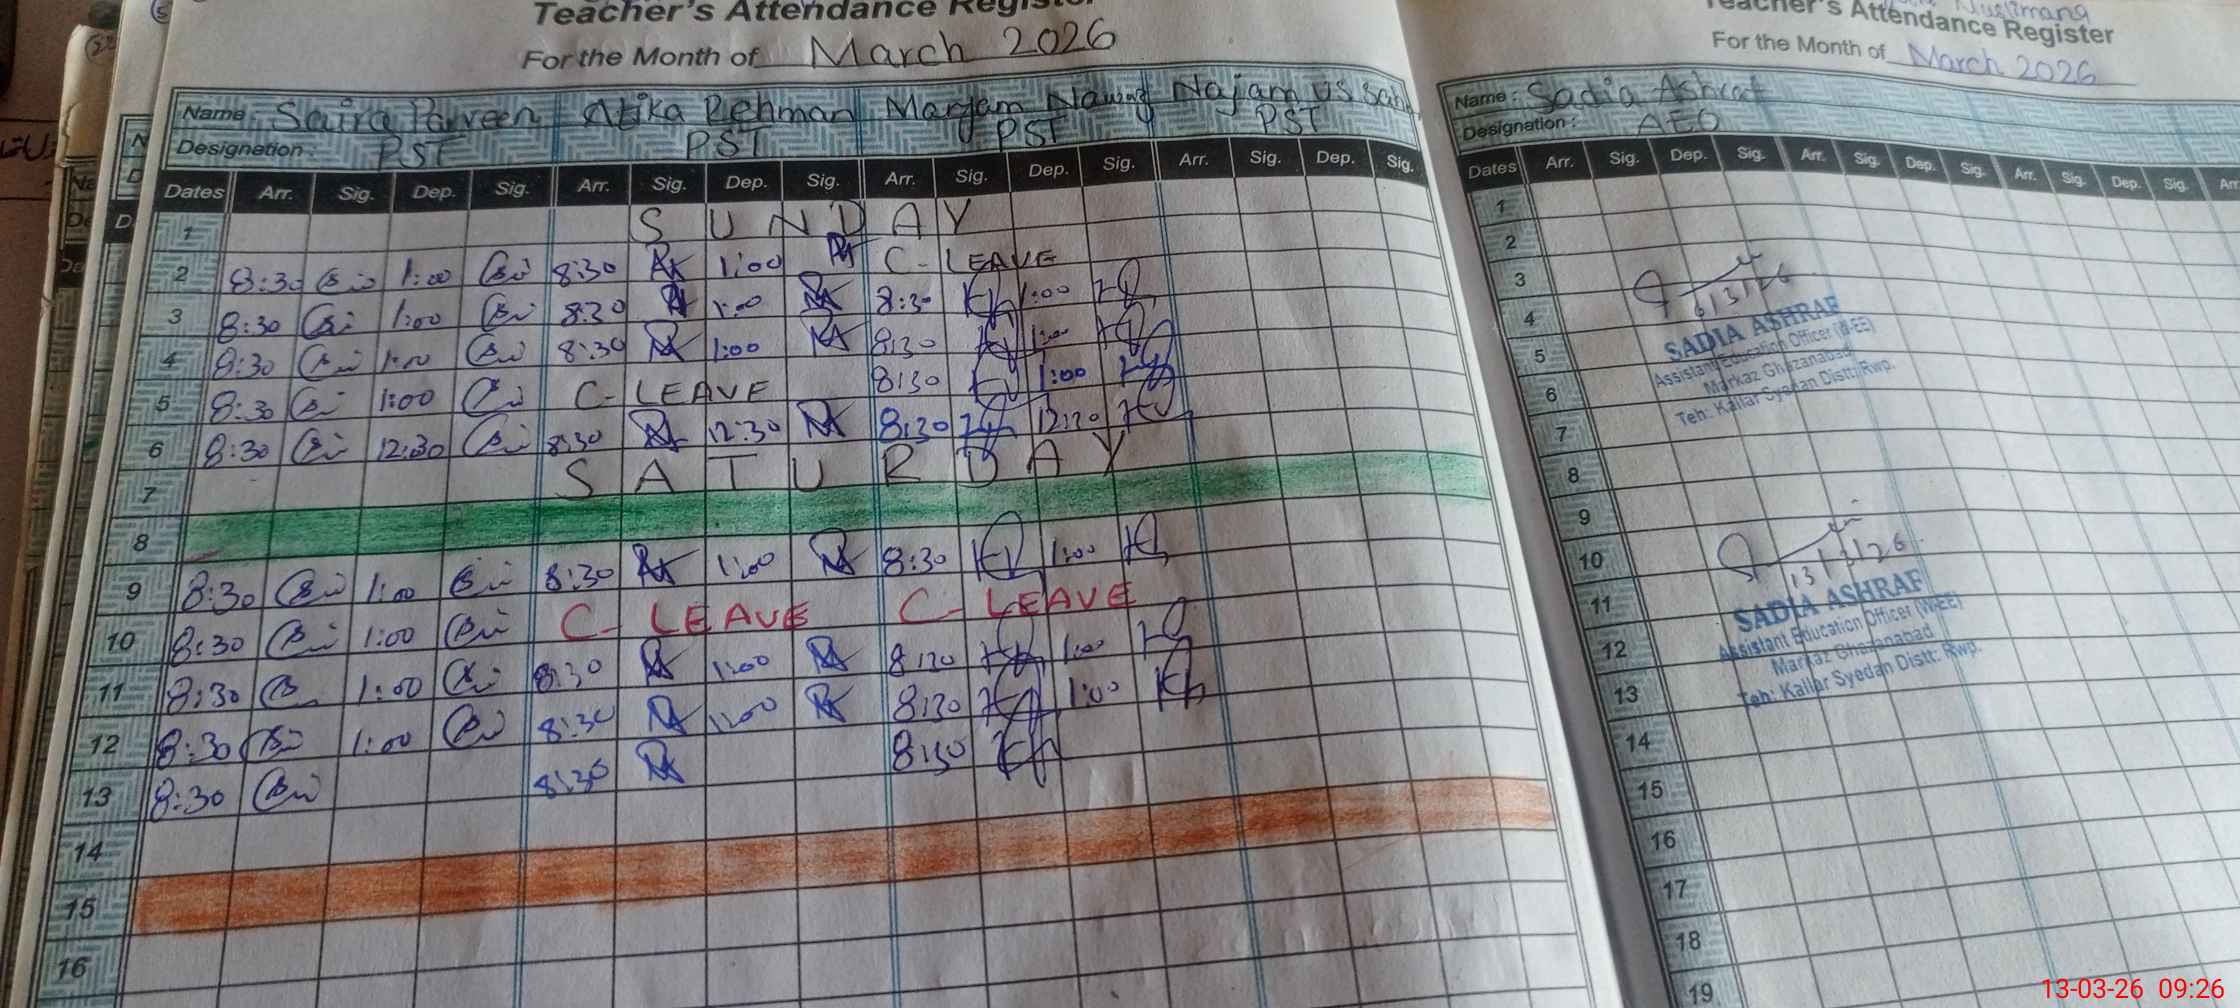 Teacher's Attendance Register
For the Month of March 2026
Name: Saira Parveen Atika Rehman Maryam Nawaz Najam us Sahr
Designation: PST PST PST PST
Dates Arr. Sig. Dep. Sig. Arr. Sig. Dep. Sig. Arr. Sig. Dep. Sig. Arr. Sig. Dep. Sig.
1 SUNDAY
2 8:30 1:00 8:30 1:00 C-LEAVE
3 8:30 1:00 8:30 1:00 8:30 1:00
4 8:30 1:00 8:30 1:00 8:30 1:00
5 8:30 1:00 C-LEAVE 8:30 1:00
6 8:30 12:30 8:30 12:30 8:30 12:30
7 SATURDAY
8
9 8:30 1:00 8:30 1:00 8:30 1:00
10 8:30 1:00 C-LEAVE C-LEAVE
11 8:30 1:00 8:30 1:00 8:30 1:00
12 8:30 1:00 8:30 1:00 8:30 1:00
13 8:30 8:30 8:30
14
15
16
Muslimang
Teacher's Attendance Register
For the Month of March 2026
Name: Sadia Ashraf
Designation: AEO
Dates Arr. Sig. Dep. Sig. Arr. Sig. Dep. Sig. Arr. Sig. Dep. Sig. Arr
1
2
3
4 6/3/26
SADIA ASHRAF
5 Assistant Education Officer (W-EE)
Markaz Ghazanabad
6 Teh: Kallar Syedan Distt: Rwp.
7
8
9
10 13/3/26
11 SADIA ASHRAF
Assistant Education Officer (W-EE)
12 Markaz Ghazanabad
13 Teh: Kallar Syedan Distt: Rwp.
14
15
16
17
18
19
13-03-26 09:26